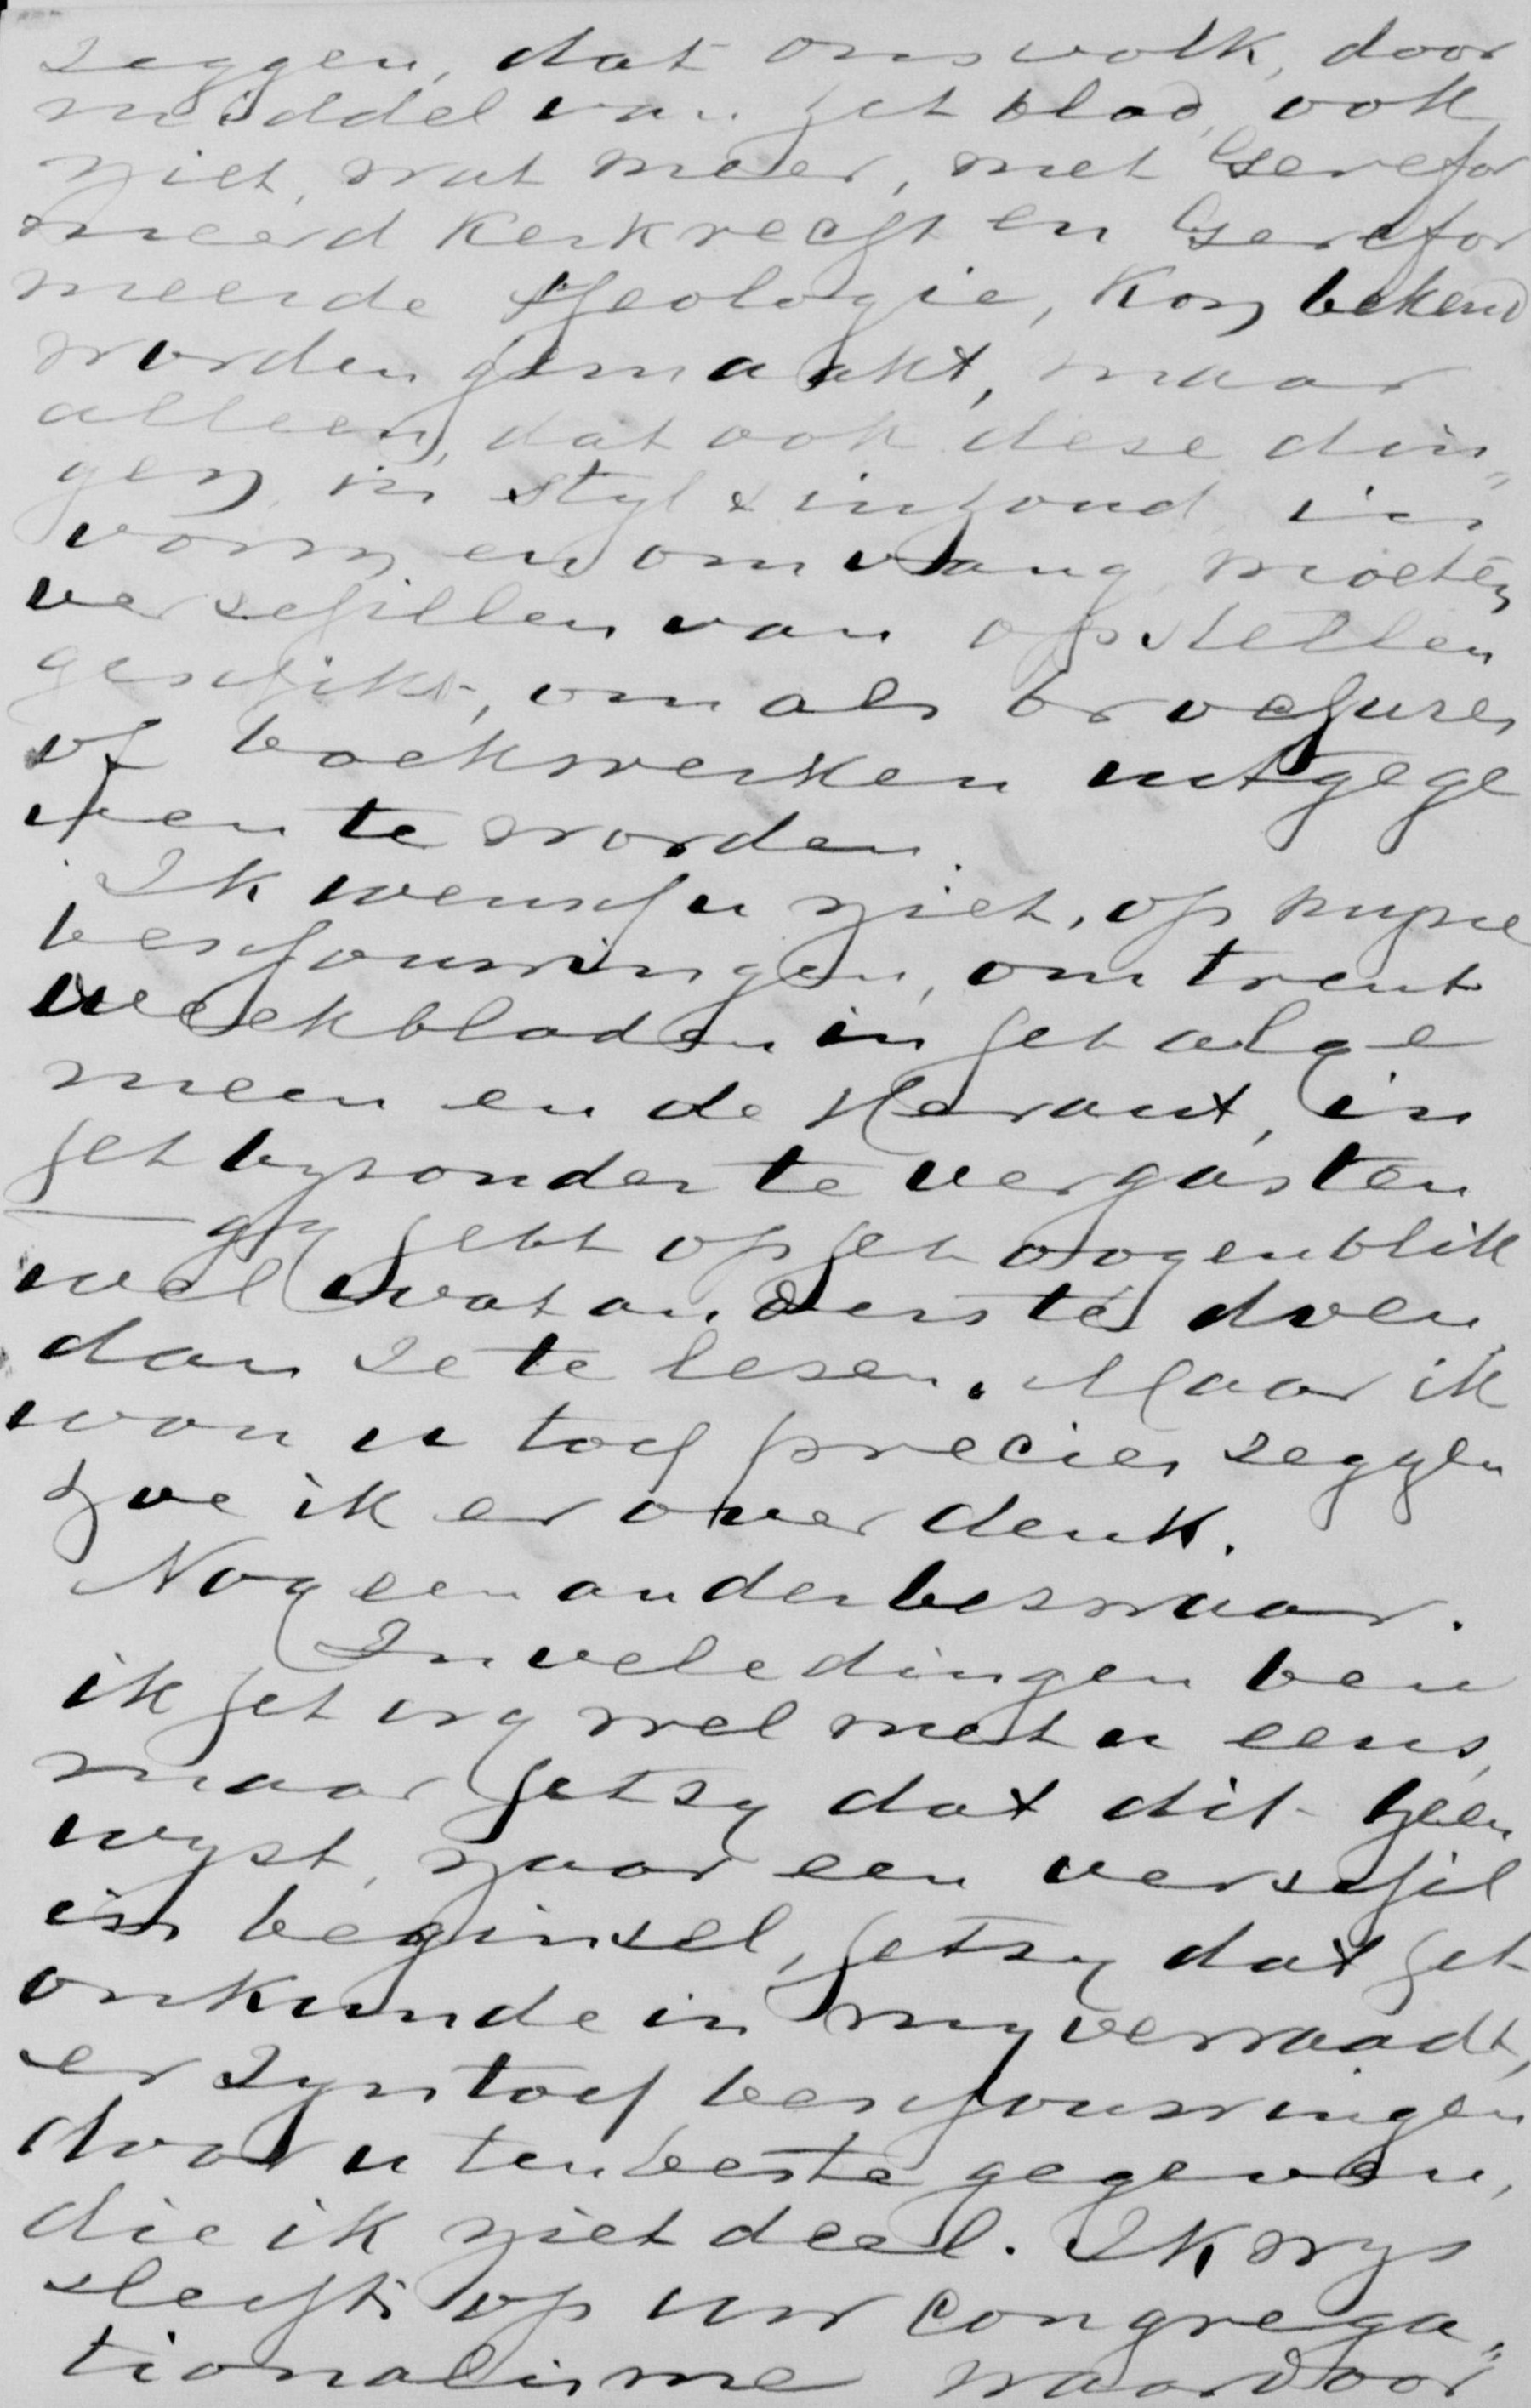 zeggen, dat ons volk, door
middel van het blad, ook
niet, wat meer, met Gerefor
meerd Kerkrecht en Gerefor
meerde theologie, kon bekend
worden gemaakt, maar
alleen, dat ook deze din„
gen, in styl & inhoud, in
vorm en omvang, moeten
verschillen van opstellen
geschikt, om als brochures
of boekwerken uitgege
ven te worden.
Ik wensch u niet, op myne
beschouwingen, omtrent
weekbladen in het alge
meen en de Heraut, in
het byzonder te vergasten
— gy hebt op het oogenblik
wel wat anders te doen,
dan ze te lezen. Maar ik
wou u toch precies zeggen
hoe ik er over denk.
Nog een ander bezwaar.
In vele dingen ben
ik het erg wel met u eens,
maar hetzy dat dit heen
wyst, naar een verschil
in beginsel, hetzy dat het
onkunde in my verraadt,
er zyn toch beschouwingen
door u ten beste gegeven,
die ik niet deel. Ik wys
slechts op uw congrega„
tionalisme waardoor